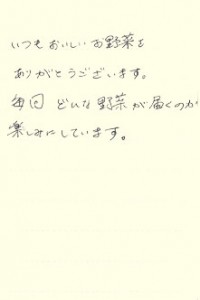 いつもおいしいお野菜を
ありがとうございます。
毎回 どんな野菜が届くのか
楽しみにしています。